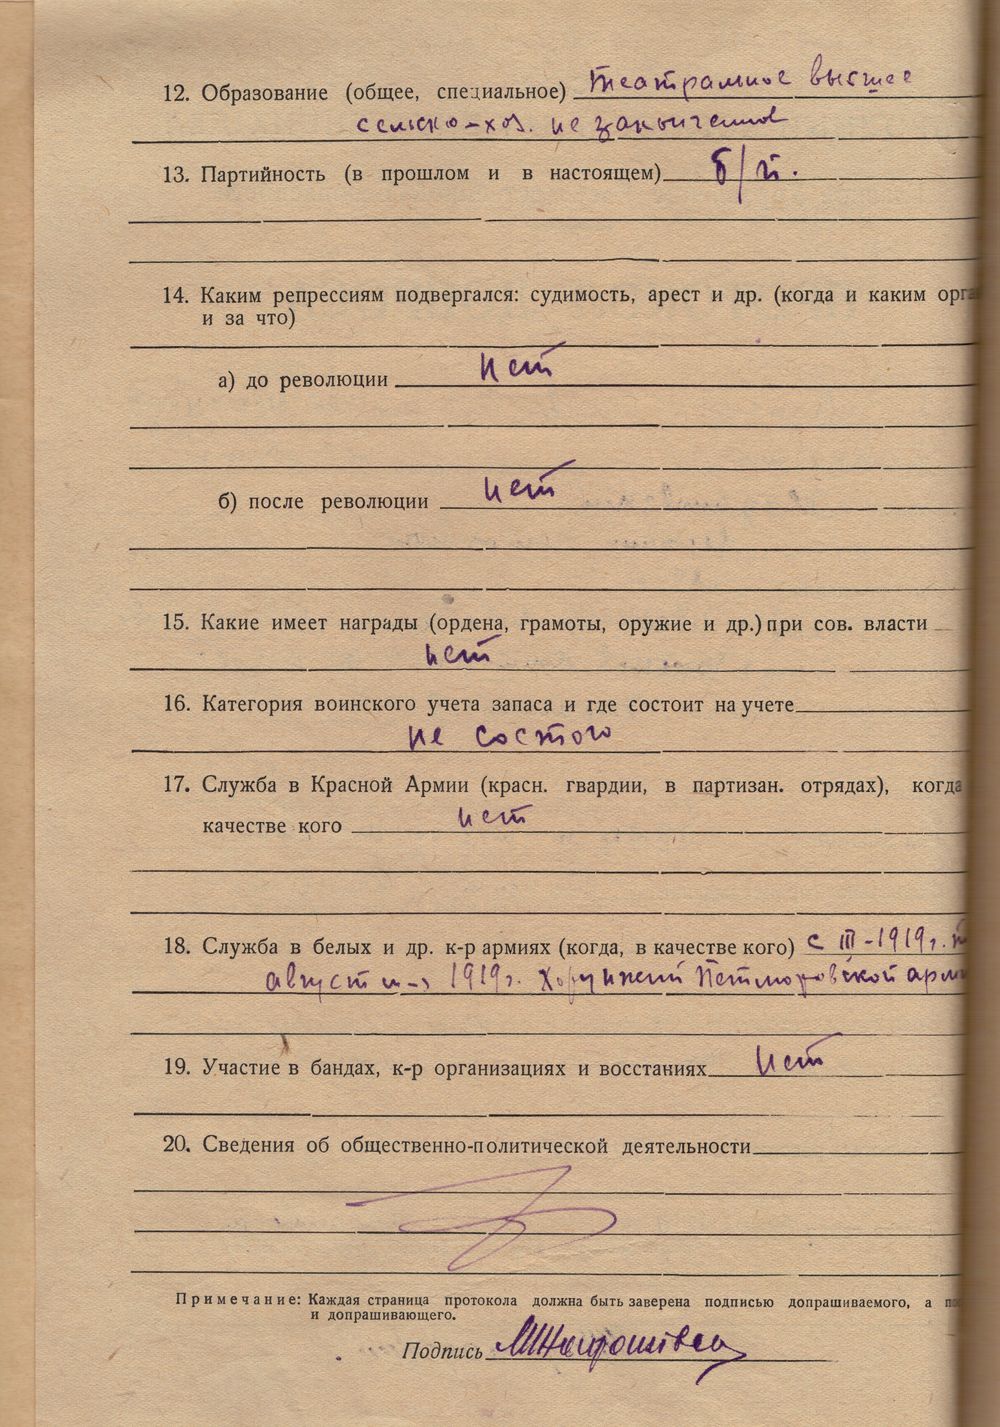 12. Образование (общее, специальное) театральное высшее
сельско-хоз. не закончено
13. Партийность (в прошлом и в настоящем) б/п.
14. Каким репрессиям подвергался: судимость, арест и др. (когда и каким орга
и за что)
а) до революции нет
б) после революции нет
15. Какие имеет награды (ордена, грамоты, оружие и др.) при сов. власти
нет
16. Категория воинского учета запаса и где состоит на учете
не состою
17. Служба в Красной Армии (красн. гвардии, в партизан. отрядах), когда
качестве кого нет
18. Служба в белых и др. к-р армиях (когда, в качестве кого) с III-1919г.
август 1919г. Хорунжий Петлюровской арми
19. Участие в бандах, к-р организациях и восстаниях нет
20. Сведения об общественно-политической деятельности
Примечание: Каждая страница протокола должна быть заверена подписью допрашиваемого, а по
и допрашивающего.
Подпись